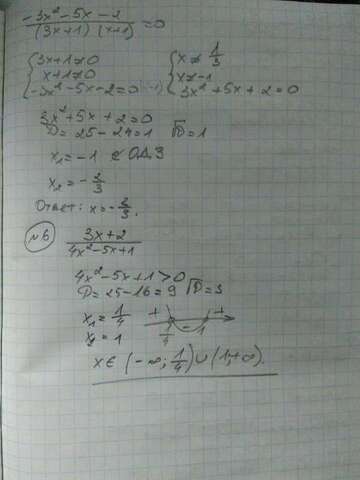 -3x²-5x-2 / (3x+1) (x+1) = 0
{ 3x+1≠0 { x ≠ 1/3
x+1≠0 x≠-1
-3x²-5x-2=0 3x²+5x+2=0
3x²+5x+2=0
D=25-24=1 √D=1
x₁=-1 ∉ ОДЗ
x₂=-2/3
Ответ: x=-2/3.
№6 3x+2 / 4x²-5x+1
4x²-5x+1>0
D=25-16=9 √D=3
x₁=1/4 + - +
x₂=1 1/4 1
x∈(-∞; 1/4)∪(1,+∞).